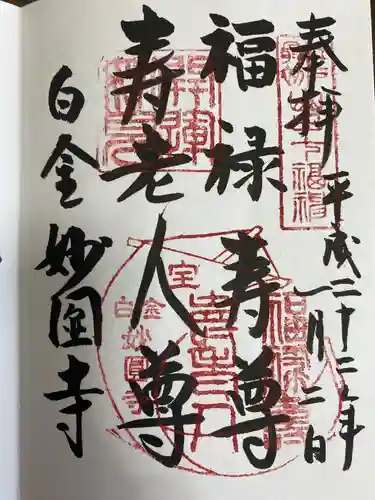 奉拝 平成二十二年一月二日
福禄寿尊
寿老人尊
白金 妙圓寺
白金妙圓寺